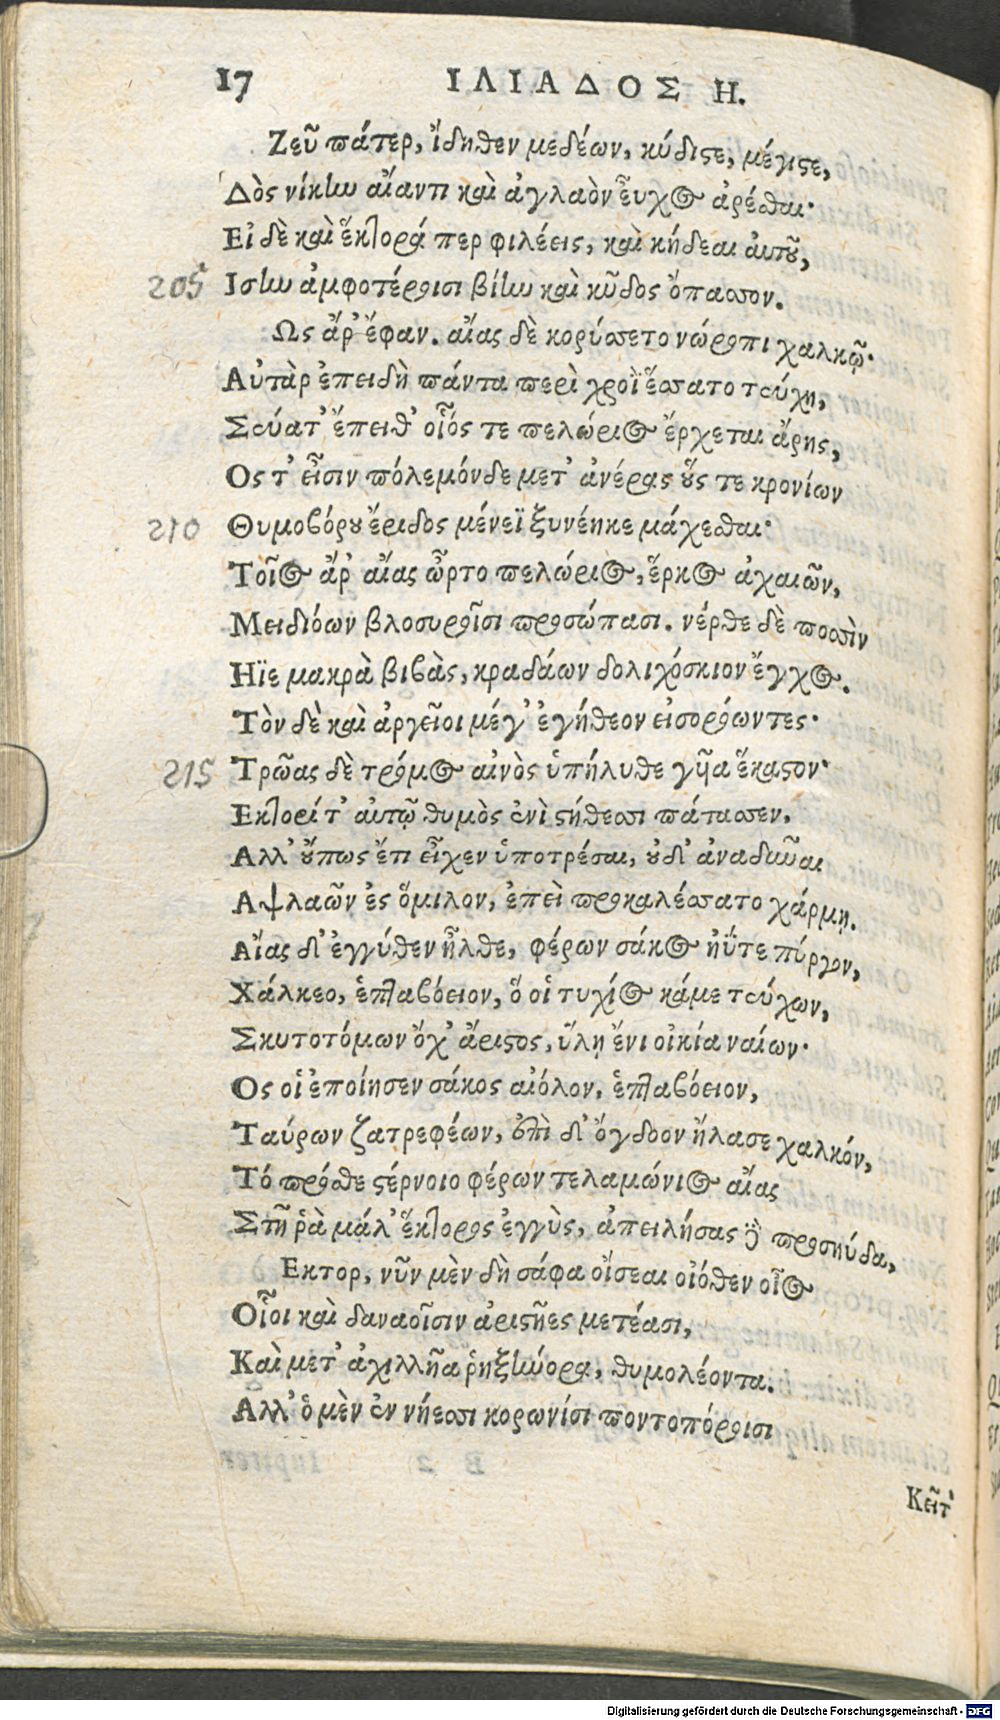 17 ΙΛΙΑΔΟΣ Η.
Ζεῦ πάτερ, ἴδηθεν μεδέων, κύδιστε, μέγιστε,
Δὸς νίκην αἴαντι καὶ ἀγλαὸν εὖχος ἀρέσθαι·
Εἰ δὲ καὶ ἕκτορά περ φιλέεις, καὶ κήδεαι αὐτοῦ,
205 Ισην ἀμφοτέροισι βίην καὶ κῦδος ὄπασσον.
Ως ἄρ' ἔφαν. αἴας δὲ κορύσσετο νώροπι χαλκῷ·
Αὐτὰρ ἐπειδὴ πάντα περὶ χροῒ ἕσσατο τεύχη,
Σεύατ' ἔπειθ' οἷός τε πελώριος ἔρχεται ἄρης,
Ος τ' εἶσιν πόλεμόνδε μετ' ἀνέρας οὕς τε κρονίων
210 Θυμοβόρου ἔριδος μένεϊ ξυνέηκε μάχεσθαι·
Τοῖος ἄρ' αἴας ὦρτο πελώριος, ἕρκος ἀχαιῶν,
Μειδιόων βλοσυροῖσι προσώπασι. νέρθε δὲ ποσσὶν
Ηϊε μακρὰ βιβὰς, κραδάων δολιχόσκιον ἔγχος.
Τὸν δὲ καὶ ἀργεῖοι μέγ' ἐγήθεον εἰσορόωντες·
215 Τρῶας δὲ τρόμος αἰνὸς ὑπήλυθε γυῖα ἕκαστον·
Εκτορί τ' αὐτῷ θυμὸς ἐνὶ στήθεσσι πάτασσεν.
Αλλ' οὔπως ἔτι εἶχεν ὑποτρέσαι, οὐδ' ἀναδῦναι
Αψ λαῶν ἐς ὅμιλον, ἐπεὶ προκαλέσσατο χάρμῃ.
Αἴας δ' ἐγγύθεν ἦλθε, φέρων σάκος ἠΰτε πύργον,
Χάλκεο, ἑπταβόειον, ὅ οἱ τυχίος κάμε τεύχων,
Σκυτοτόμων ὄχ' ἄριστος, ὕλῃ ἔνι οἰκία ναίων·
Ος οἱ ἐποίησεν σάκος αἰόλον, ἑπταβόειον,
Ταύρων ζατρεφέων, ἐπὶ δ' ὄγδοον ἤλασε χαλκόν,
Τό πρόσθε στέρνοιο φέρων τελαμώνιος αἴας
Στῆ ῥὰ μάλ' ἕκτορος ἐγγὺς, ἀπειλήσας δὲ προσηύδα,
Εκτορ, νῦν μὲν δὴ σάφα οἴσεαι οἰόθεν οἶος
Οἷοι καὶ δαναοῖσιν ἀριστῆες μετέασι,
Καὶ μετ' ἀχιλλῆα ῥηξήνορα, θυμολέοντα.
Αλλ' ὁ μὲν ἐν νήεσσι κορωνίσι ποντοπόροισι
Κεῖτ'
Digitalisierung gefördert durch die Deutsche Forschungsgemeinschaft - DFG